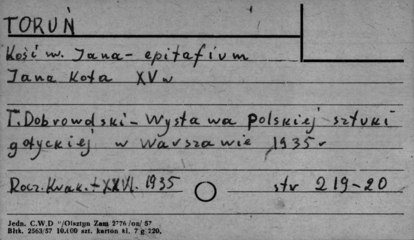 TORUŃ
Kość w. Jana - epitafium
Jana Kota XV w
T. Dobrowolski - Wystawa polskiej sztuki
gotyckiej w Warszawie 1935 r
Rocz. Krak. t XXVI. 1935 str 219-20
Jedn. C.W.D Olsztyn Zam
Błtk. 2563/57 10.100 szt. karton kl. 7 g 220.